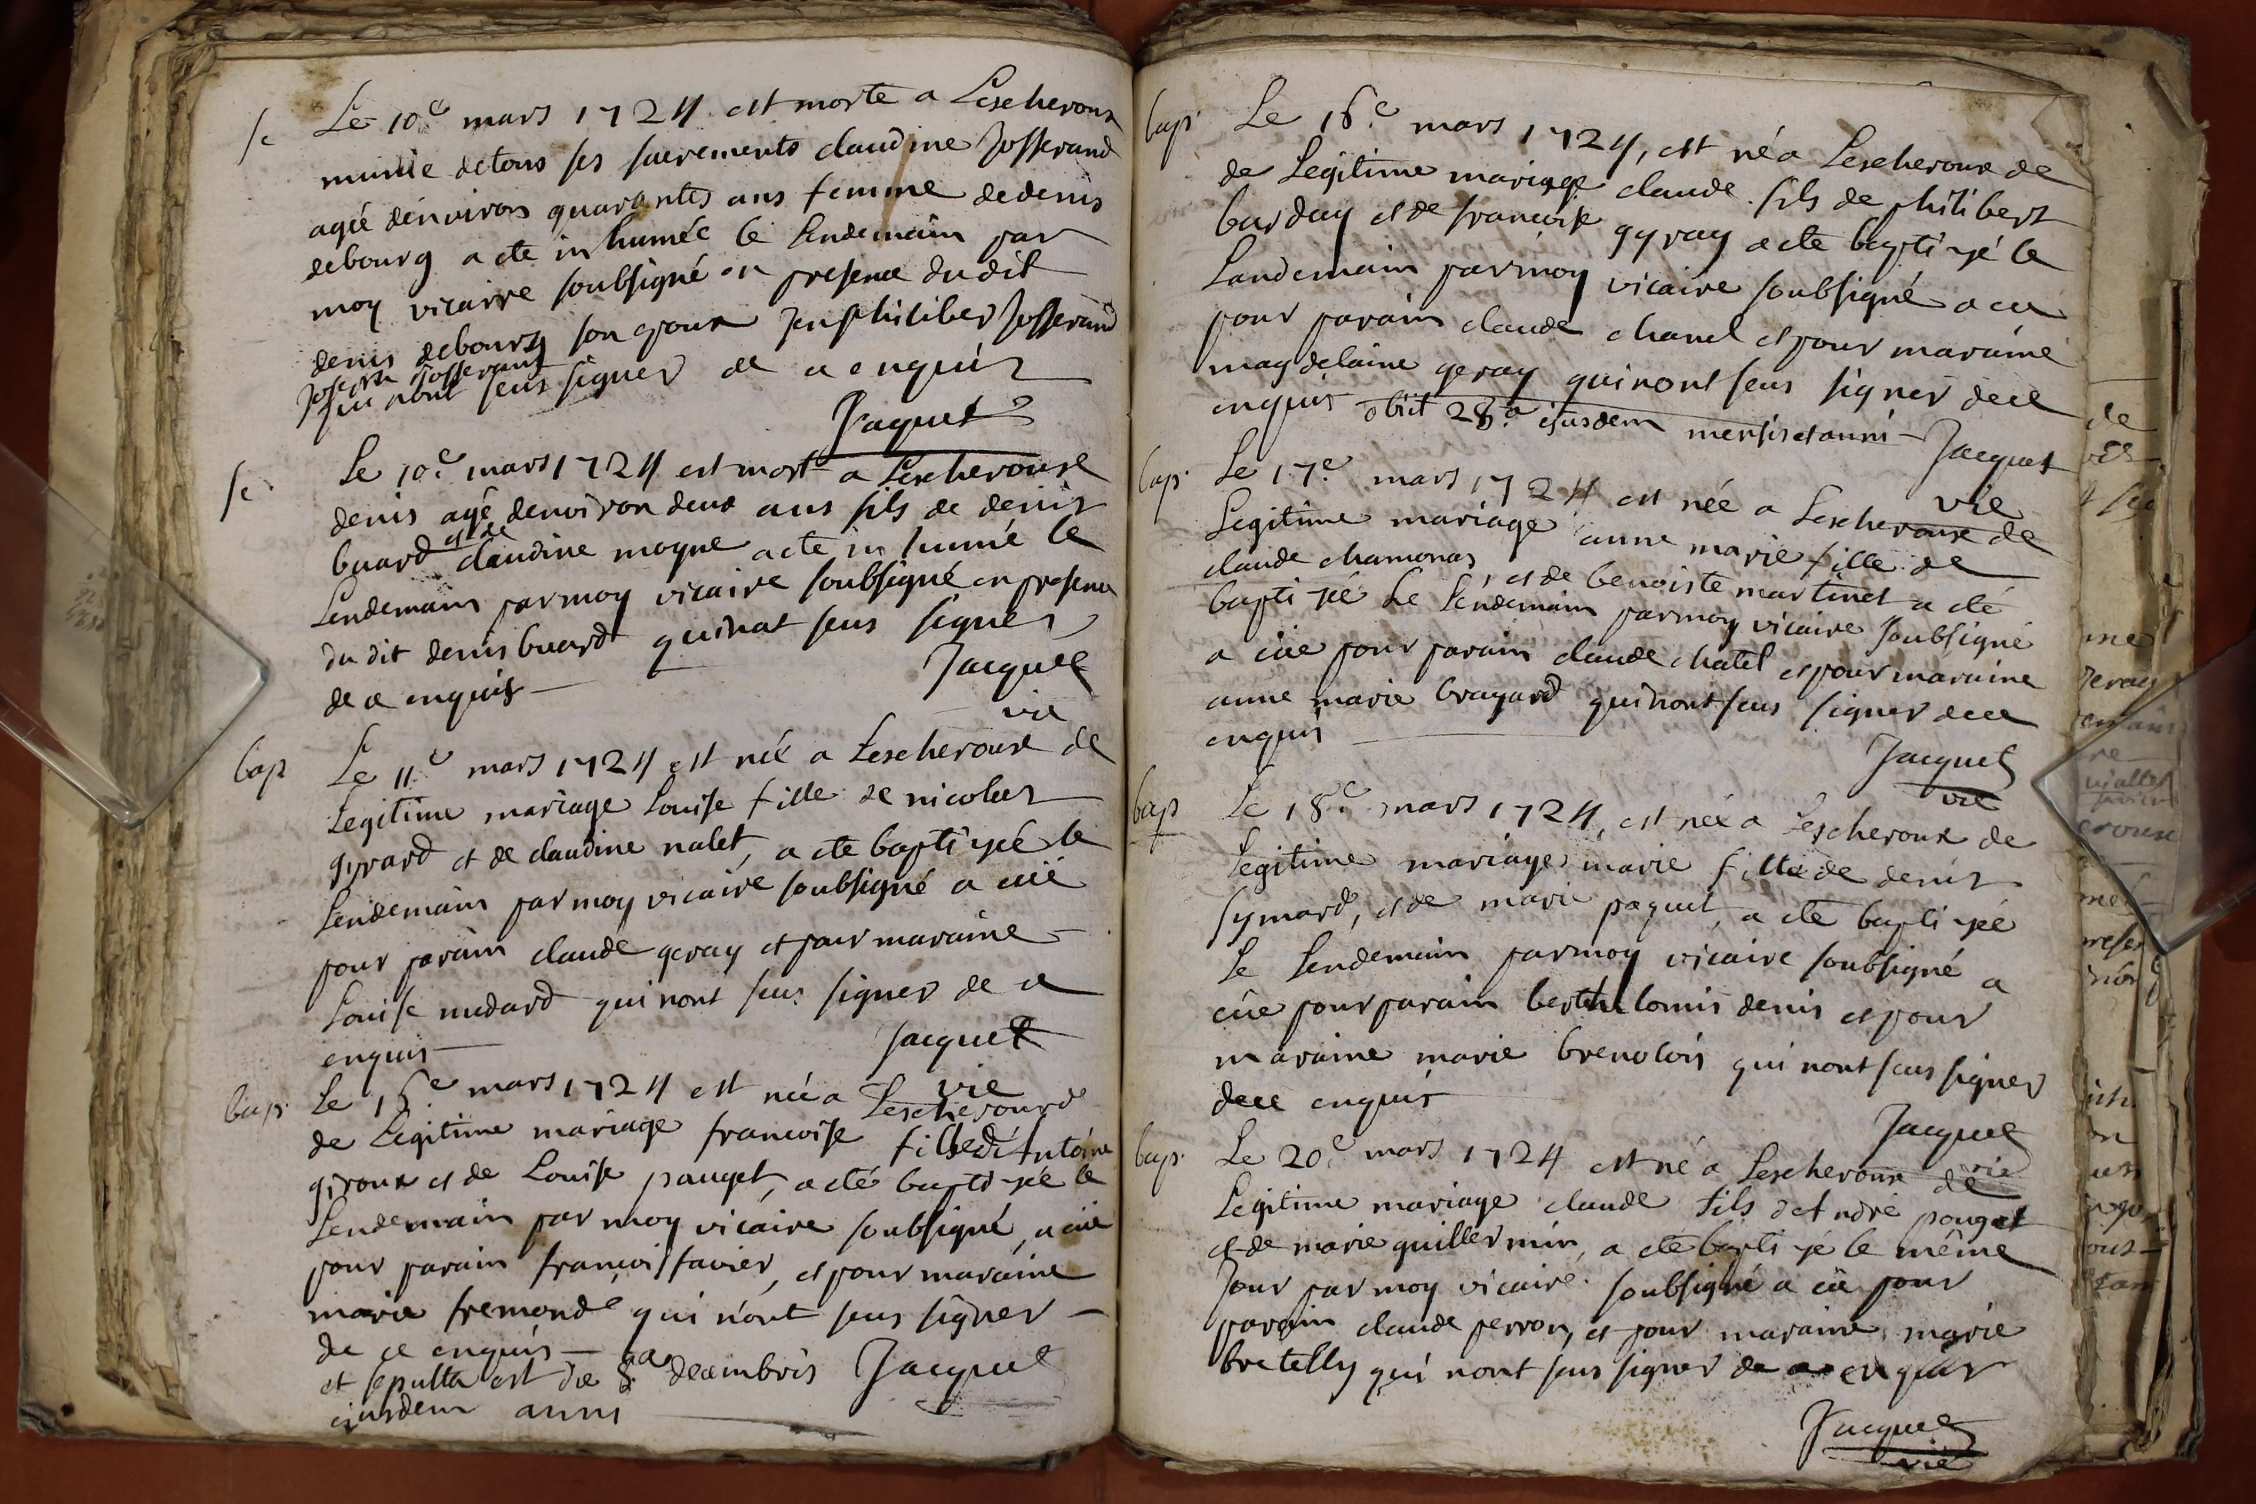 Le 10e mars 1724 est morte a Lescheroux
se
munie de tous ses sacrements claudine Josserand
agée denviron quarantes ans femme de denis
debourg a ete inhumée le Lendemain par
moy vicaire soubsigné en presence du dit
denis debourg son epoux Jen philiber Josserand
Joseph Josserand
qui nont seus signer de ce enquis
Jaquet
se
Le 10e mars 1724 est mort a Lescheroux
denis agé denviron deux ans fils de denis
buard et de claudine moyne a ete inhumé le
Lendemain par moy vicaire soubsigné en presence
du dit denis buard qui nat seus signer
de ce enquis
Jacquet
vic
bap
Le 11e mars 1724 est née a Lescheroux de
Legitime mariage Louise fille de nicolas
girard et de claudine nalet, a ete baptisée le
Lendemain par moy vicaire soubsigné a eüe
pour parain claude geray et pour maraine
Louise mudard qui nont seus signer de ce
enquis
Jacquet
vic
bap.
Le 15e mars 1724 est née a Lescheroux
de Legitime mariage francoise fille d'Antoine
giroux et de Louise pauget, a eté baptisée le
Lendemain par moy vicaire soubsigné, a eüe
pour parain francois favier, et pour maraine
marie fremonde qui n'ont seus signer
de ce enquis
Jacquet
et sepulta est die 8a decembris
ejusdem anni
bap.
Le 16e mars 1724, est né a Lescheroux de
de Legitime mariage claude fils de philibert
burday et de francoise gyray a ete baptisé le
Landemain par moy vicaire soubsigné a eu
pour parain claude chanel et pour maraine
magdelaine geray qui nont seus signer de ce
enquis obiit 28a ejusdem mensis et anni
Jacquet
vic
bap.
Le 17e mars 1724 est née a Lescheroux de
Legitime mariage anne marie fille de
claude chamonas, et de benoiste martinet a eté
baptisée Le Lendemain par moy vicaire soubsigné
a eüe pour parain claude chatel et pour maraine
anne marie brayard qui nont seus signer de ce
enquis
Jacquet
vic
bap
Le 18e mars 1724, est née a Lescheroux de
Legitime mariage marie fille de denis
symard, et de marie paquet, a ete baptisée
Le Lendemain par moy vicaire soubsigné a
eüe pour parain berthelomis denis et pour
maraine marie brenolois qui nont seus signer
de ce enquis
Jacquet
vic
bap.
Le 20e mars 1724 est né a Lescheroux de
Legitime mariage claude fils d'André pouget
et de marie guillermin, a ete baptisé le même
Jour par moy vicaire soubsigné a eü pour
parain claude perron, et pour maraine marie
bretelly qui nont seus signer de ce enquis
Jacquet
vic